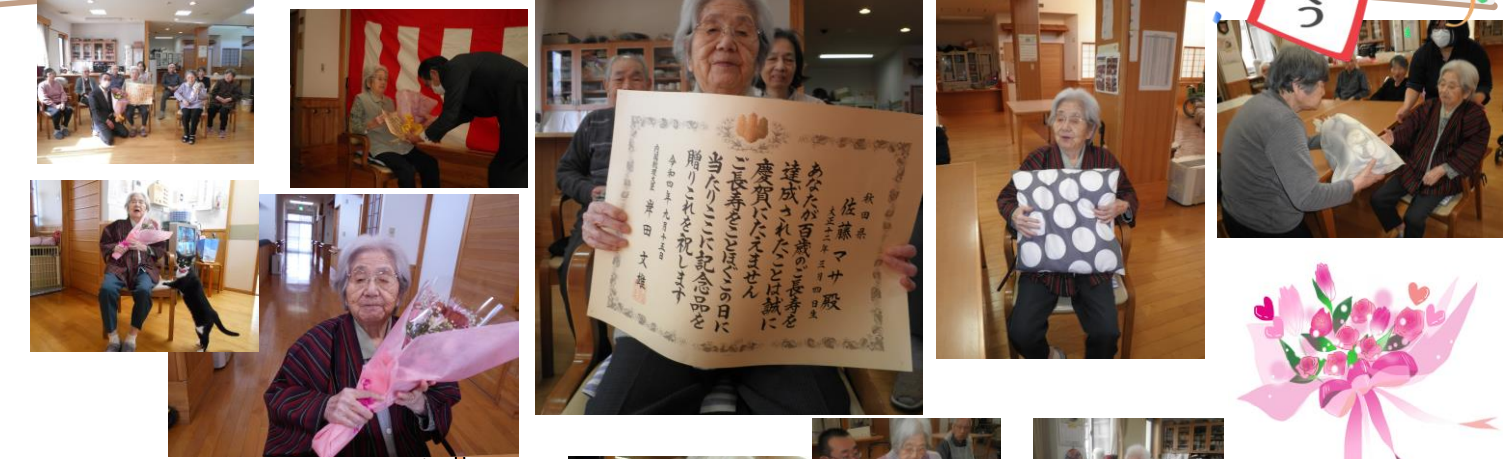 う
秋田県
佐藤マサ殿
大正十二年三月四日生
あなたが百歳のご長寿を
達成されたことは誠に
慶賀にたえません
ご長寿をことほぎこの日に
当たりここに記念品を
贈りこれを祝します
令和四年九月十五日
内閣総理大臣 岸田文雄